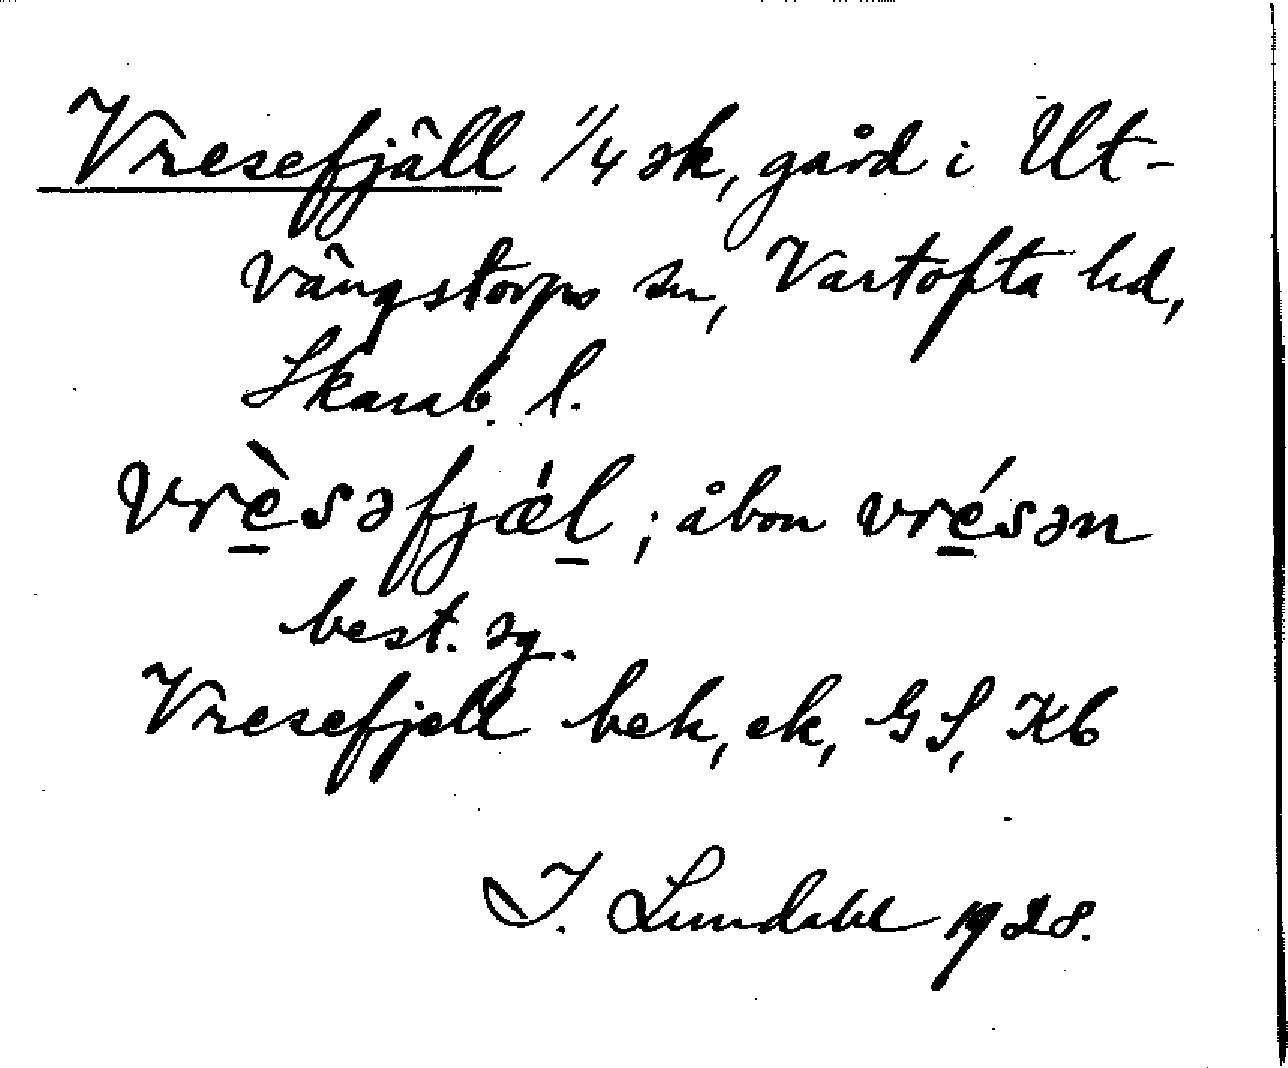 Vresefjäll 1/4 sk, gård i Ut-
vängstorps sn, Vartofta hd,
Skarab. l.
vrèsəfjæ̀l ; åbon vrésən
best. sg.
Vresefjell bek, ek, GS, Kb
I. Lundahl 1928.